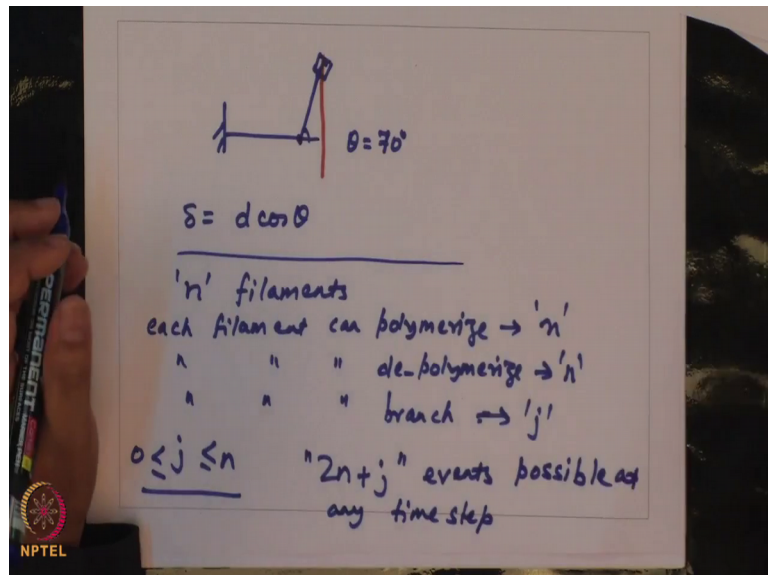 θ = 70°
δ = d cos θ
'n' filaments
each filament can polymerize → 'n'
" " " de-polymerize → 'n'
" " " branch → 'j'
0 ≤ j ≤ n "2n + j" events possible at
any time step
PERMANENT
NPTEL